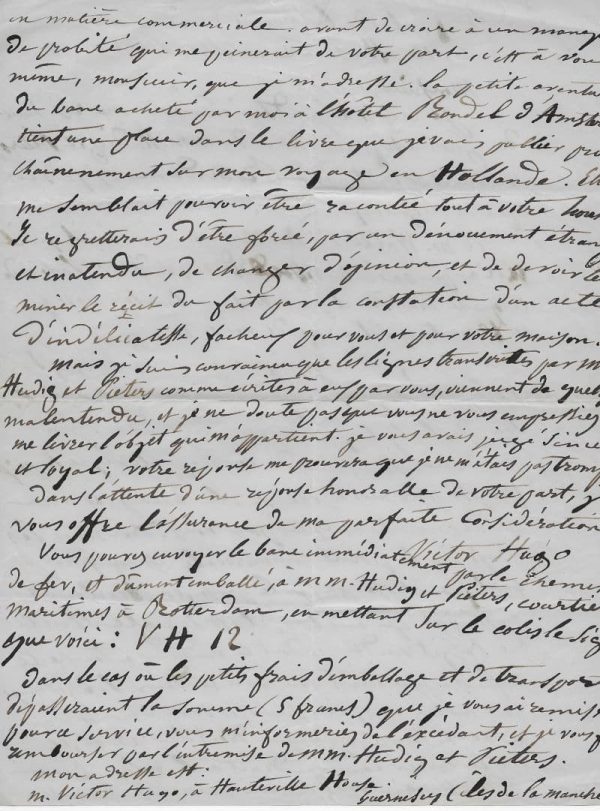 en matière commerciale. avant de croire à un manque
de probité qui me peinerait de votre part, c'est à vous
même, monsieur, que je m'adresse. la petite aventure
du banc acheté par moi à l'hôtel Rondel d'Amster
tient une place dans le livre que je vais publier pro
chainement sur mon voyage en Hollande. Elle
me semblait pouvoir être racontée tout à votre honn
Je regretterais d'être forcé, par un dénouement étran
et inatendu, de changer d'opinion, et de devoir te
miner le récit du fait par la constatation d'un acte
d'indélicatesse, facheux pour vous et pour votre maison.
mais je suis convaincu que les lignes transcrites par m
Hudig et Pieters comme écrites à eux par vous, viennent de quelq
malentendu, et je ne doute pas que vous ne vous empressiez
me livrer l'objet qui m'appartient. je vous avais jugé sincè
et loyal; votre réponse me prouvera que je ne m'étais pas tromp
dans l'attente d'une réponse honorable de votre part, j
vous offre l'assurance de ma parfaite considération
Victor Hugo
Vous pouvez envoyer le banc immédiatement par le Chemin
de fer, et dûment emballé, à MM. Hudig et Pieters, courtie
maritimes à Rotterdam, en mettant sur le colis le sig
que voici: VH 12
dans le cas où les petits frais d'emballage et de transpor
dépasseraient la somme (5 francs) que je vous ai remise
pour ce service, vous m'informeriez de l'excédant, et je vous f
rembourser par l'intremise de mm. Hudig et Pieters.
mon adresse est:
m. Victor Hugo, à Hauteville House. Guernesey (îles de la manche